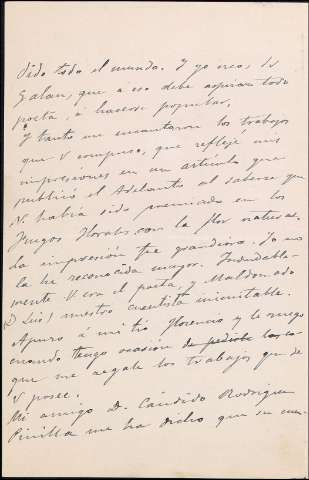 dido todo el mundo. Y yo creo, Sr
Galán, que a eso debe aspirar todo
poeta, á hacerse popular.
Y tanto me encantaron los trabajos
que V compuso, que reflejé mis
impresiones en un artículo que
publicó el Adelanto al saberse que
V. había sido premiado en los
Juegos Florales con la flor natural.
La impresión fue grandiosa. Yo no
la he reconocido mayor. Indudable-
mente V es el poeta, y Maldonado
(D Luis) nuestro cuentista inimitable.
Apuro á mi tio Florencio y le ruego
cuando tengo ocasión de pedirle los co-
que me regale los trabajos que de
V posee.
Mi amigo D. Cándido Rodríguez
Pinilla me ha dicho que su cun-